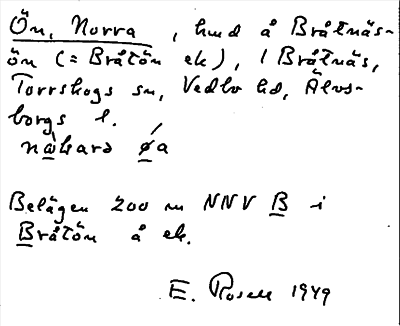 Ön, Norra, hmd å Bråtnäs-
ön (= Bråtön ek), 1 Bråtnäs,
Torrskogs sn, Vedbo hd, Älvs-
borgs l.
øa
Belägen 200 m NNV B i
Bråtön å ek.
E. Rosell 1949